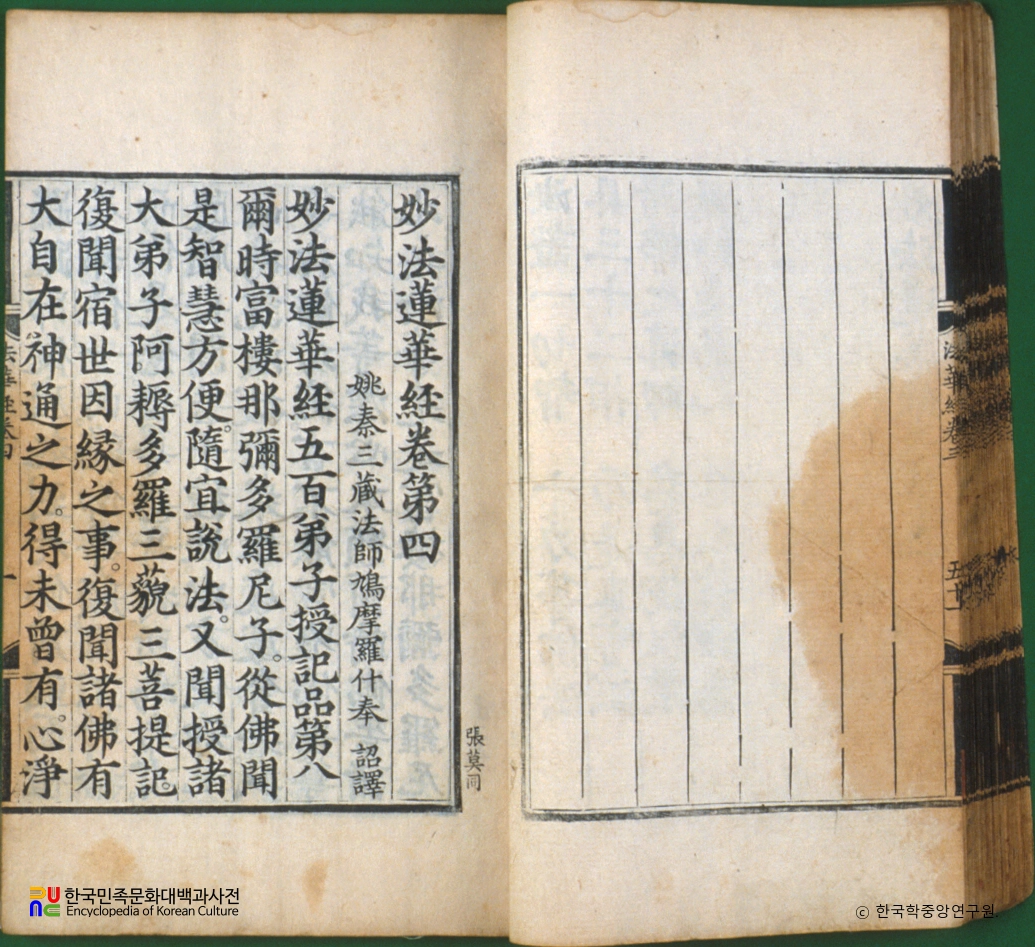 法華經卷三
五十一
妙法蓮華経卷第四
姚秦三藏法師鳩摩羅什奉 詔譯
妙法蓮華経五百弟子授記品第八
爾時富樓那彌多羅尼子。從佛聞
是智慧方便。隨宜說法。又聞授諸
大弟子阿耨多羅三藐三菩提記。
復聞宿世因緣之事。復聞諸佛有
大自在神通之力。得未曾有。心淨
法華経卷四
一
한국민족문화대백과사전
Encyclopedia of Korean Culture
© 한국학중앙연구원.